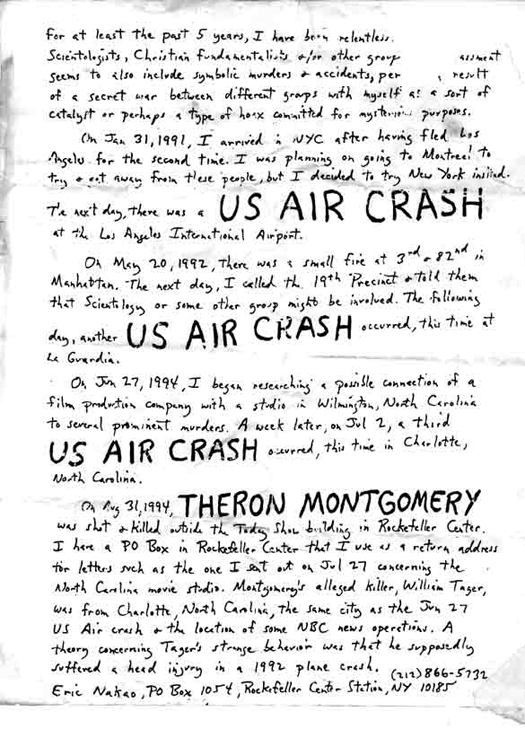 For at least the past 5 years, I have been relentless.
Scientologists, Christian fundamentalists &/or other group assment
seems to also include symbolic murders & accidents, per , result
of a secret war between different groups with myself as a sort of
catalyst or perhaps a type of hoax committed for mysterious purposes.
On Jan 31, 1991, I arrived in NYC after having fled Los
Angeles for the second time. I was planning on going to Montreal to
try & get away from these people, but I decided to try New York instead.
The next day, there was a US AIR CRASH
at the Los Angeles International Airport.
On May 20, 1992, there was a small fire at 3rd & 82nd in
Manhattan. The next day, I called the 19th Precinct & told them
that Scientology or some other group might be involved. The following
day, another US AIR CRASH occurred, this time at
La Guardia.
On Jun 27, 1994, I began researching a possible connection of a
film production company with a studio in Wilmington, North Carolina
to several prominent murders. A week later, on Jul 2, a third
US AIR CRASH occurred, this time in Charlotte,
North Carolina.
On Aug 31, 1994, THERON MONTGOMERY
was shot & killed outside the Today Show building in Rockefeller Center.
I have a PO Box in Rockefeller Center that I use as a return address
for letters such as the one I sent out on Jul 27 concerning the
North Carolina movie studio. Montgomery's alleged killer, William Tager,
was from Charlotte, North Carolina, the same city as the Jun 27
US Air crash & the location of some NBC news operations. A
theory concerning Tager's strange behavior was that he supposedly
suffered a head injury in a 1992 plane crash. (212) 866-5732
Eric Nakao, PO Box 1054, Rockefeller Center Station, NY 10185